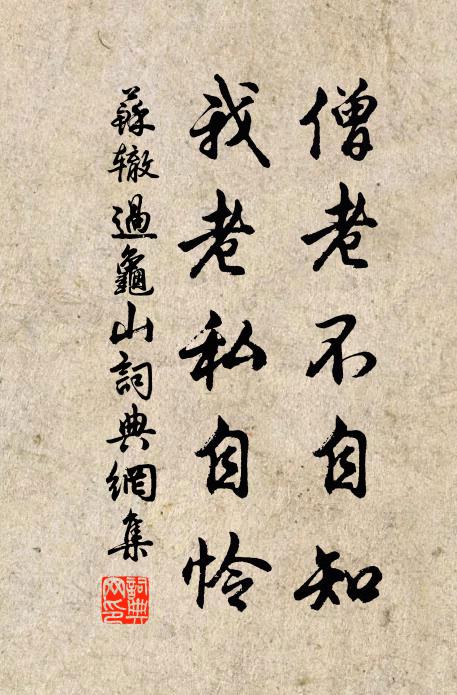 僧老不自知
我老私自怜
蘇辙過龜山詞典網集
詞典网印